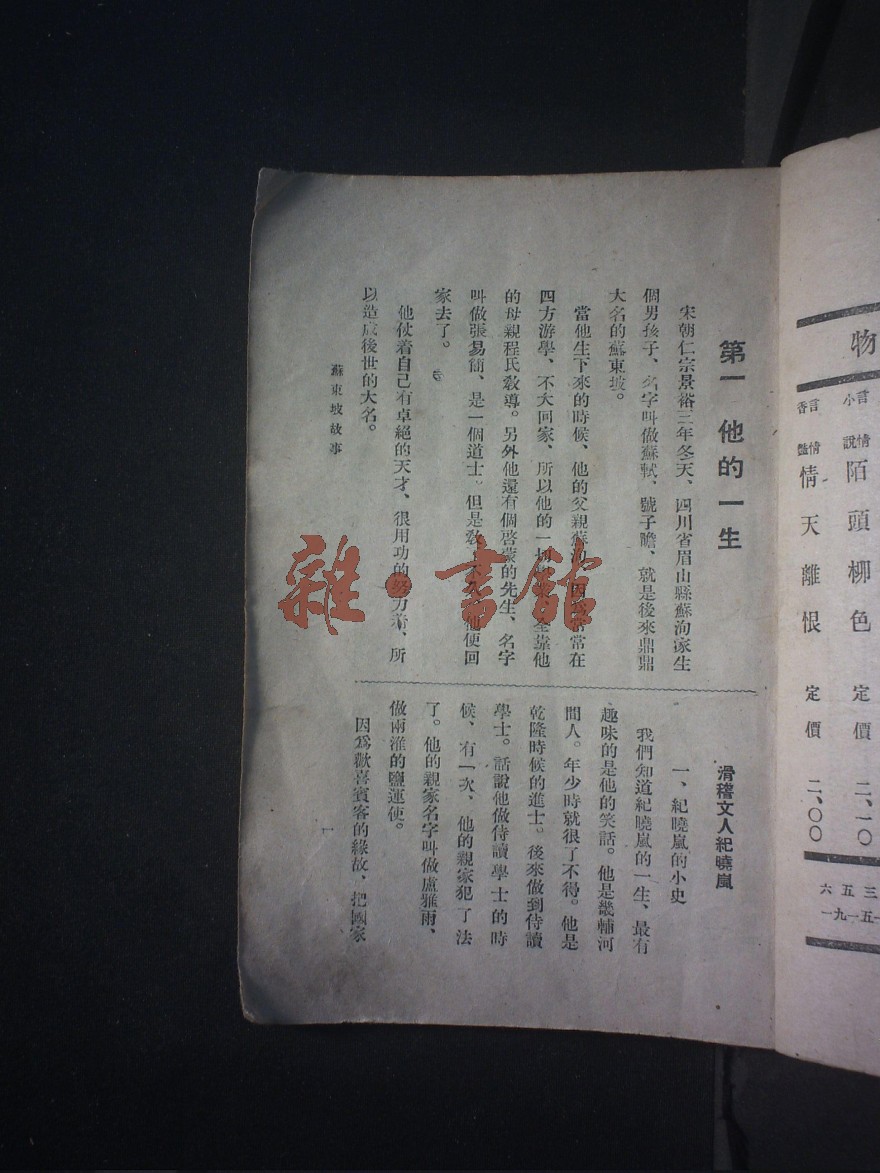 第一 他的一生
宋朝仁宗景裕三年冬天、四川省眉山縣蘇洵家生
個男孩子、名字叫做蘇軾、號子瞻、就是後來鼎鼎
大名的蘇東坡。
當他生下來的時候、他的父親蘇洵、因爲常常在
四方游學、不大回家、所以他的一切 全靠他
的母親程氏敎導。另外他還有個啓蒙的先生、名字
叫做張易簡、是一個道士。但是敎 他便回
家去了。
他仗着自己有卓絕的天才、很用功的努力着、所
以造成後世的大名。
蘇東坡故事
滑稽文人紀曉嵐
一、紀曉嵐的小史
我們知道紀曉嵐的一生、最有
趣味的是他的笑話。他是畿輔河
間人。年少時就很了不得。他是
乾隆時候的進士。後來做到侍讀
學士。話說他做侍讀學士的時
候、有一次、他的親家犯了法
了。他的親家名字叫做盧雅雨、
做兩淮的鹽運使。
因爲歡喜賓客的緣故、把國家
物
言情小說 陌頭柳色 定價 二、一〇
言情香豔 情天離恨 定價 二、〇〇
三五六
一九一五一
雜·書館